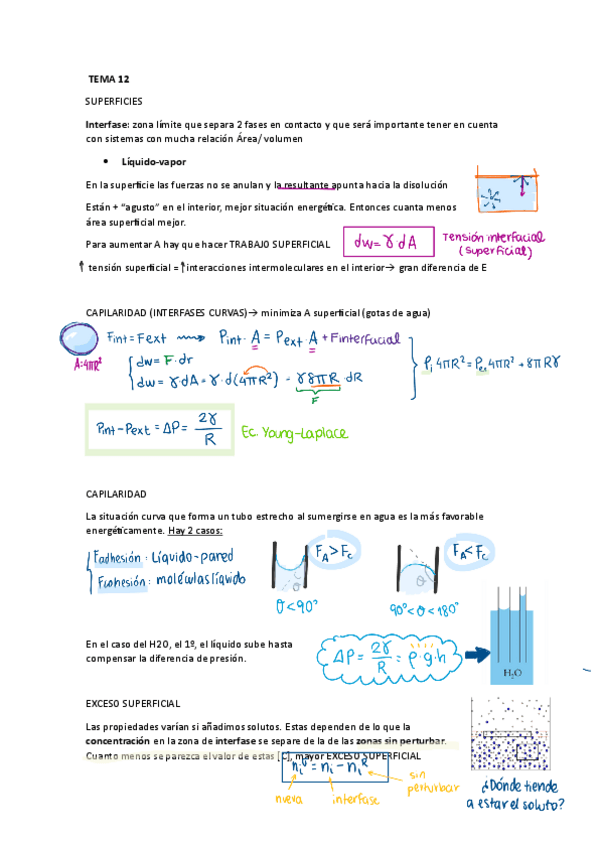 TEMA 12
SUPERFICIES
Interfase: zona límite que separa 2 fases en contacto y que será importante tener en cuenta
con sistemas con mucha relación Área/ volumen
• Líquido-vapor
En la superficie las fuerzas no se anulan y la resultante apunta hacia la disolución
Están + "agusto" en el interior, mejor situación energética. Entonces cuanta menos
área superficial mejor.
Para aumentar A hay que hacer TRABAJO SUPERFICIAL
dw = γ dA
Tensión interfacial
(superficial)
↑ tensión superficial = ↑ interacciones intermoleculares en el interior→ gran diferencia de E
CAPILARIDAD (INTERFASES CURVAS)→ minimiza A superficial (gotas de agua)
A=4πR²
Fint = Fext ⟿ Pint · A = Pext · A + Finterfacial
dw = F · dr
dw = γ·dA = γ·d(4πR²) = γ8πR dR
F
Pi 4πR² = Pex 4πR² + 8πRγ
Pint - Pext = ΔP = 2γ/R
Ec. Young-Laplace
CAPILARIDAD
La situación curva que forma un tubo estrecho al sumergirse en agua es la más favorable
energéticamente. Hay 2 casos:
Fadhesión : Líquido-pared
Fcohesión : moléculas líquido
FA > FC
θ
θ < 90°
FA < FC
θ
90° < θ < 180°
En el caso del H2O, el 1º, el líquido sube hasta
compensar la diferencia de presión.
ΔP = 2γ/R = ρ·g·h
H₂O
EXCESO SUPERFICIAL
Las propiedades varían si añadimos solutos. Estas dependen de lo que la
concentración en la zona de interfase se separe de la de las zonas sin perturbar.
Cuanto menos se parezca el valor de estas [C], mayor EXCESO SUPERFICIAL
niσ = ni - niR
nueva
interfase
sin
perturbar
¿Dónde tiende
a estar el soluto?